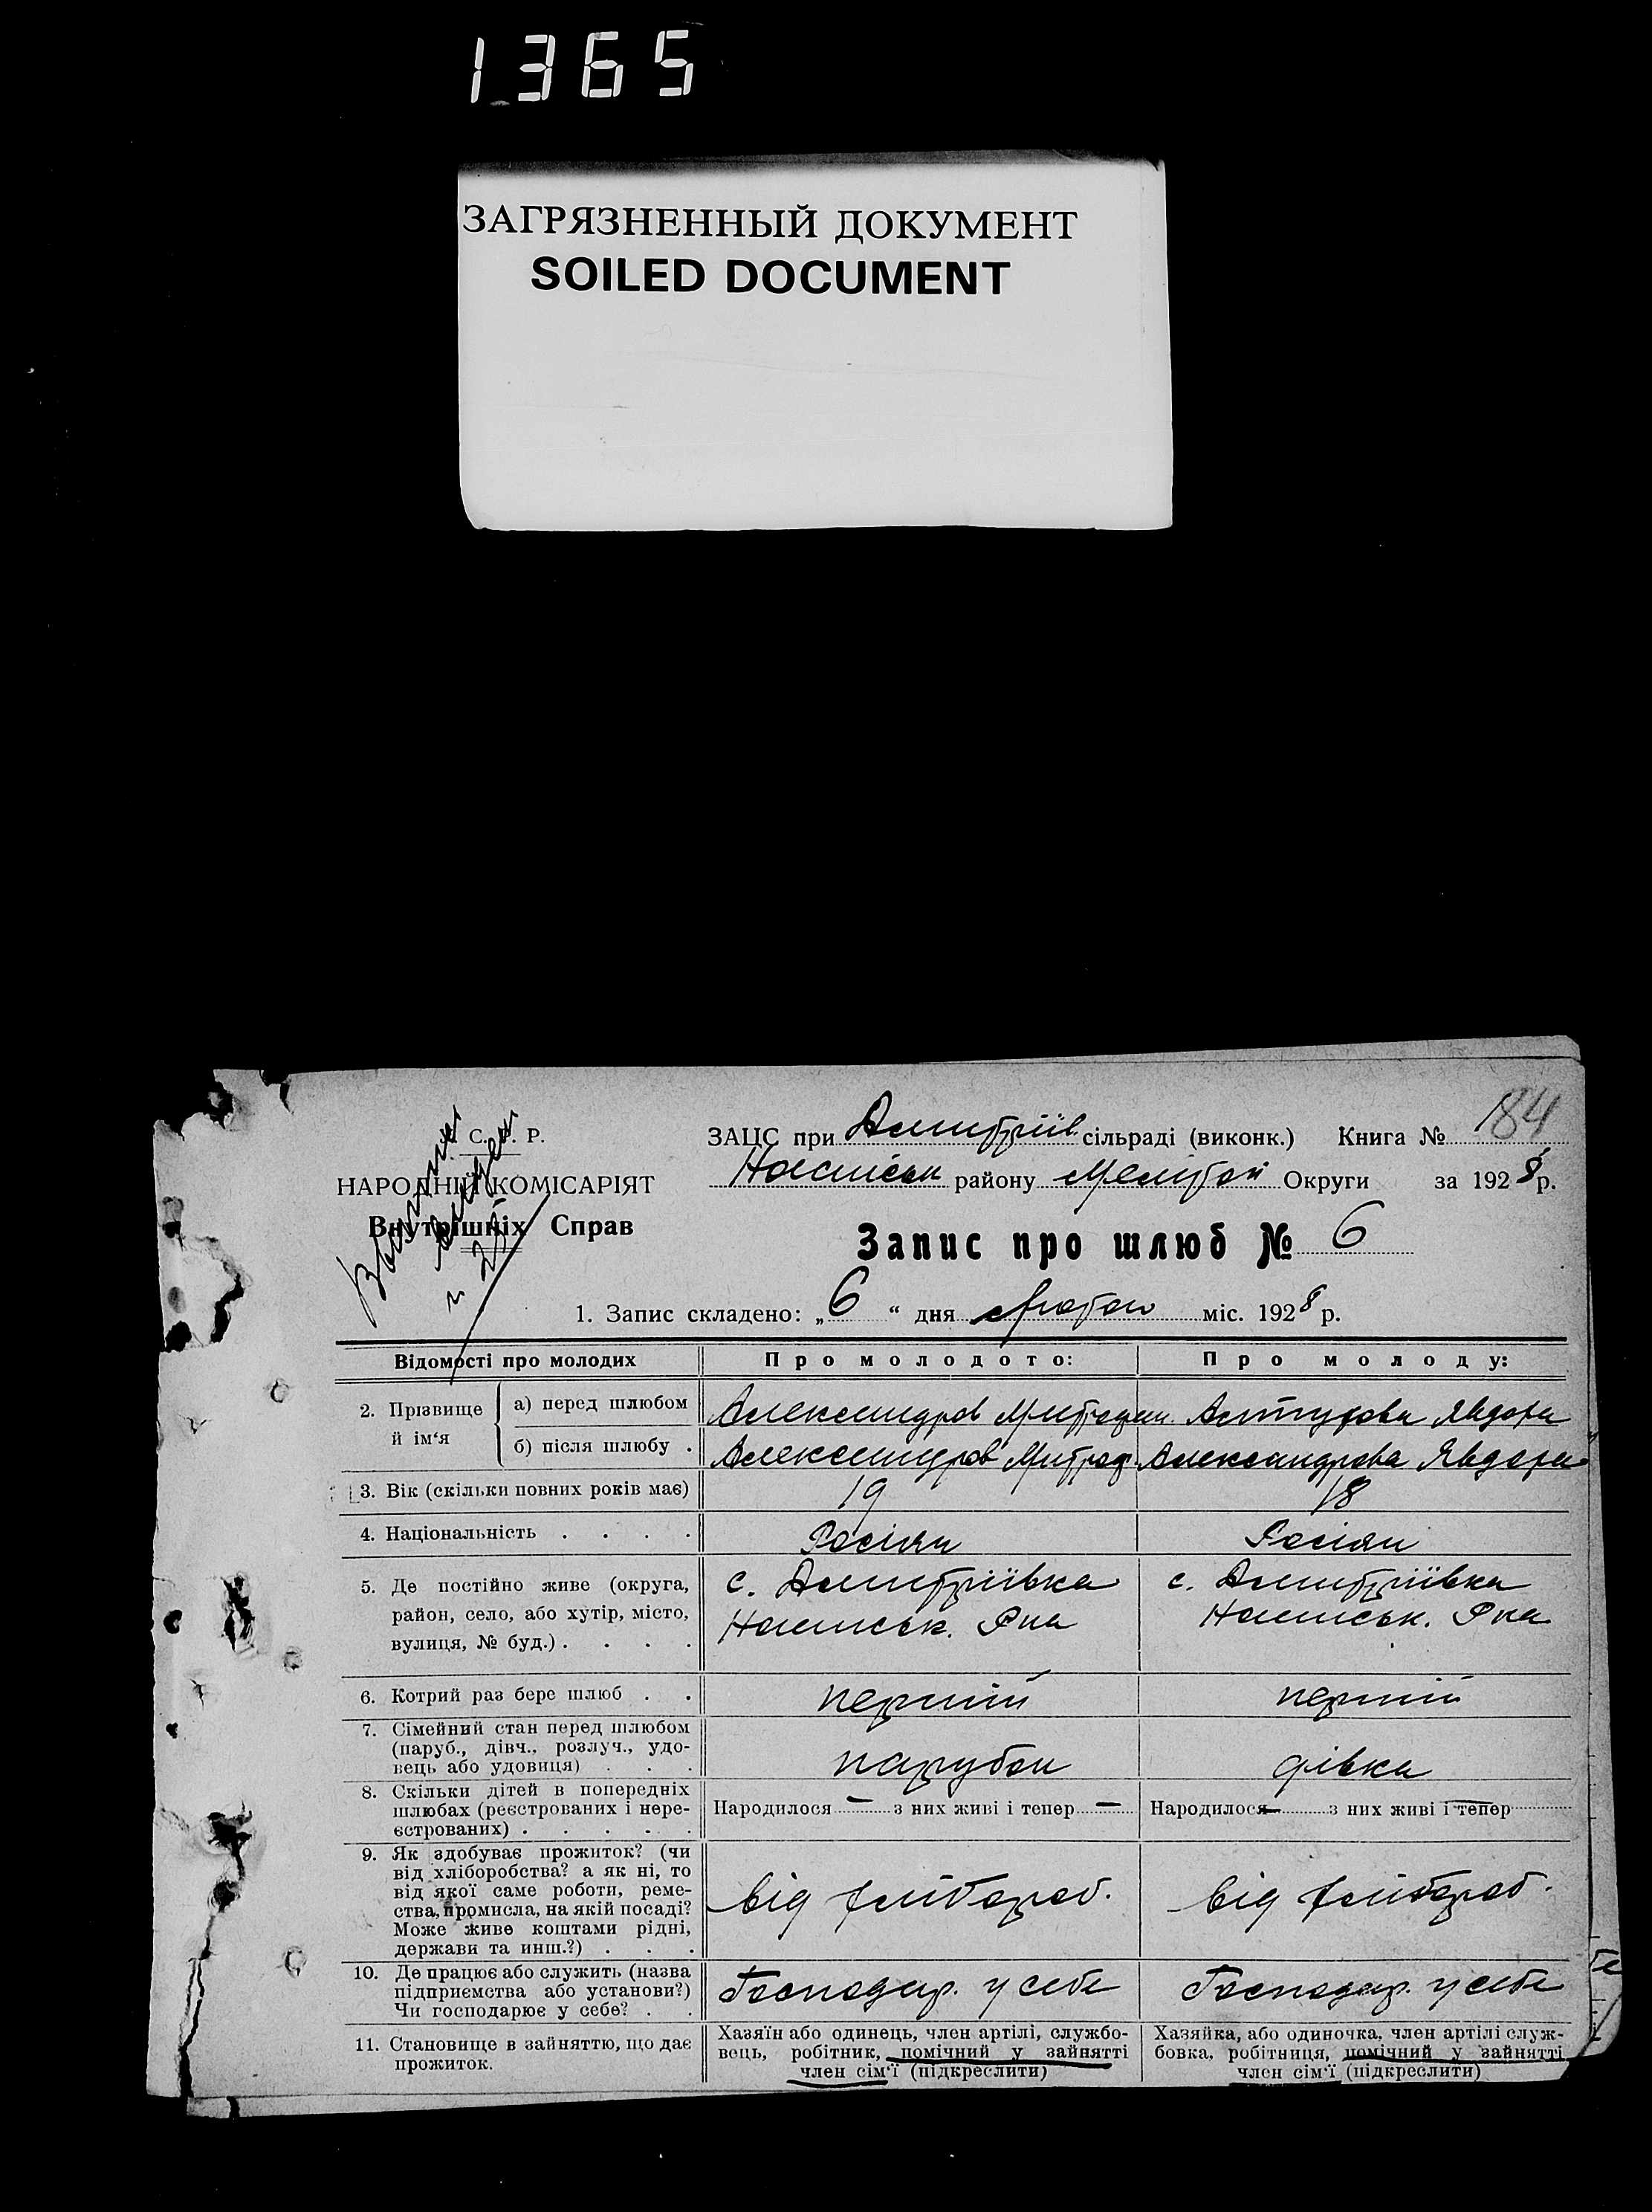 1365
ЗАГРЯЗНЕННЫЙ ДОКУМЕНТ
SOILED DOCUMENT
184
С. Р.
НАРОДНІЙ КОМІСАРІЯТ
Внутрішніх Справ
ЗАЦС при Дмитріїв. сільраді (виконк.) Книга №
району Округи за 1928 р.
Запис про шлюб № 6
1. Запис складено: „6“ дня Лютого міс. 1928 р.
Відомості про молодих Про молодого: Про молоду:
2. Прізвище й ім‘я
а) перед шлюбом Александров Явдоха
б) після шлюбу . Александров Митроф. Александрова Явдоха
3. Вік (скільки повних років має) 19 18
4. Національність . . . . Росіян Росіян
5. Де постійно живе (округа,
район, село, або хутір, місто,
вулиця, № буд.) . . . .
с. Дмитріївка
с. Дмитріївка
6. Котрий раз бере шлюб . . перший перший
7. Сімейний стан перед шлюбом
(паруб., дівч., розлуч., удо-
вець або удовиця) . . .
парубок дівка
8. Скільки дітей в попередніх
шлюбах (реєстрованих і нере-
єстрованих) . . . . .
Народилося — з них живі і тепер —
Народилося — з них живі і тепер —
9. Як здобуває прожиток? (чи
від хліборобства? а як ні, то
від якої саме роботи, реме-
ства, промисла, на якій посаді?
Може живе коштами рідні,
держави та инш.?) . . .
від хліброб. від хліброб.
10. Де працює або служить (назва
підприємства або установи?)
Чи господарює у себе? . .
Господар. у себе Господар. у себе
11. Становище в зайняттю, що дає
прожиток.
Хазяїн або одинець, член артілі, службо-
вець, робітник, помічний у зайнятті
член сім‘ї (підкреслити)
Хазяйка, або одиночка, член артілі служ-
бовка, робітниця, помічний у зайнятті
член сім‘ї (підкреслити)